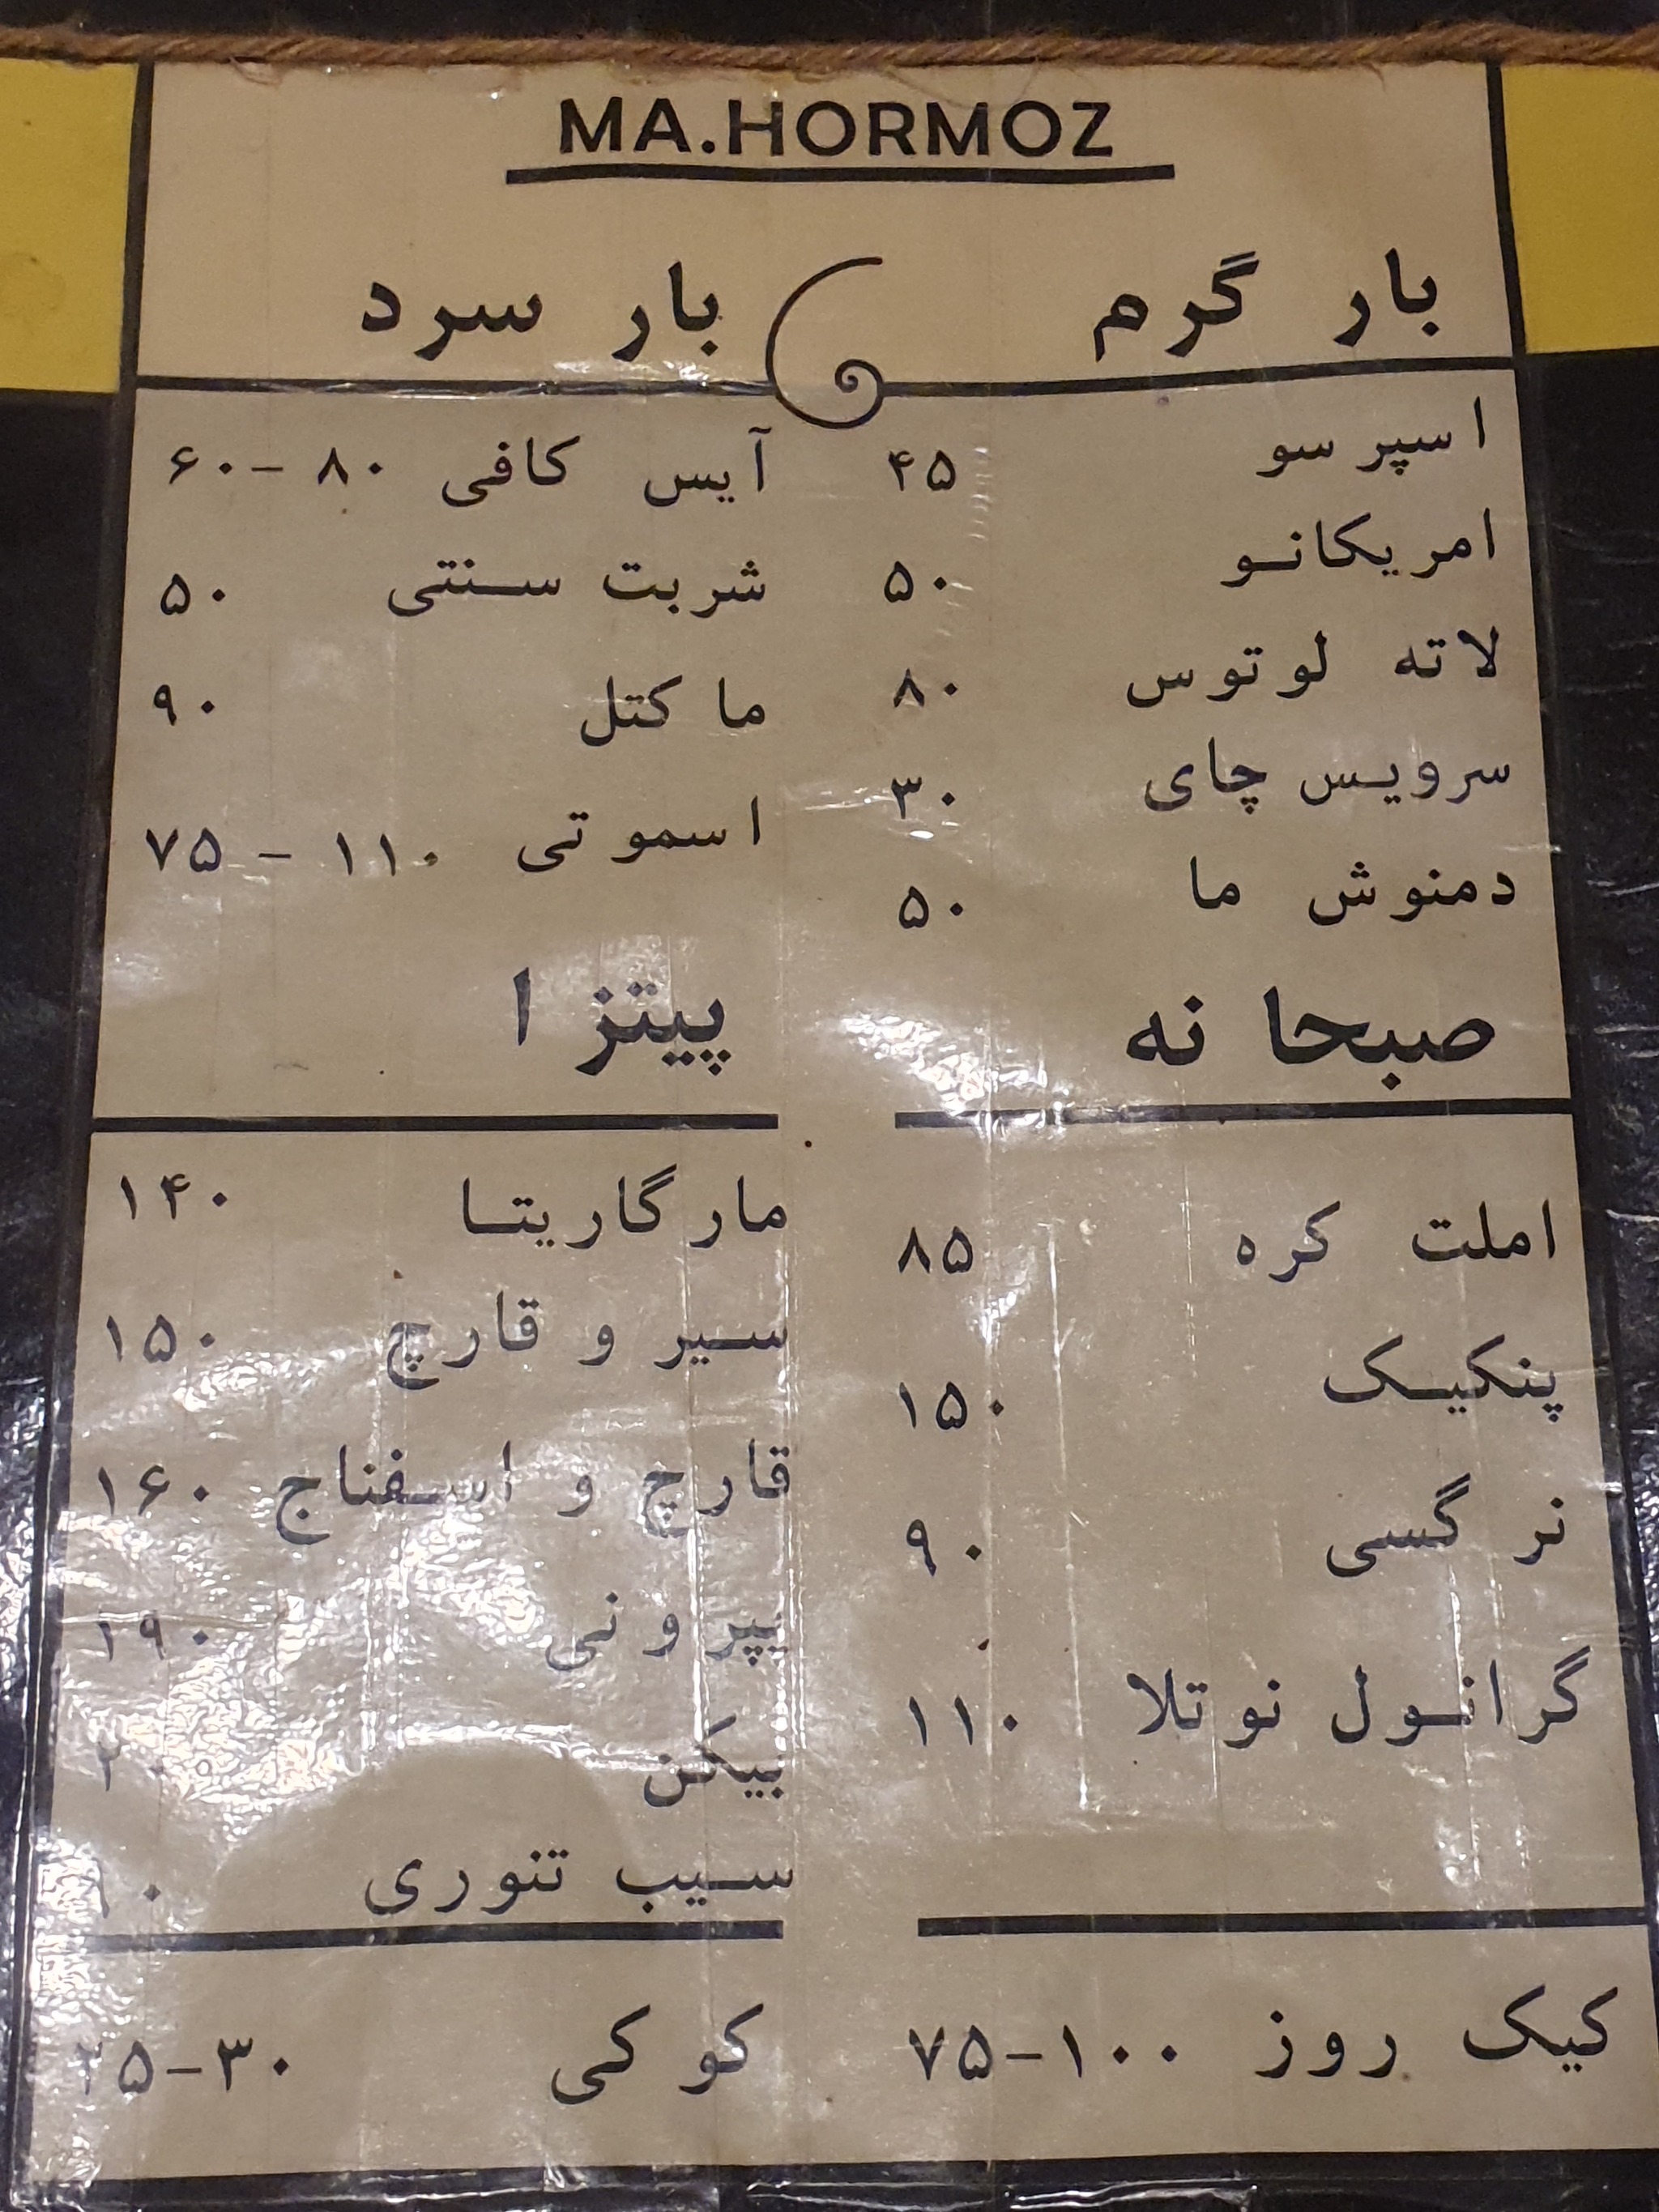 MA.HORMOZ
بار گرم
اسپرسو ۴۵
امریکانو ۵۰
لاته لوتوس ۸۰
سرویس چای ۳۰
دمنوش ما ۵۰
بار سرد
آیس کافی ۶۰-۸۰
شربت سنتی ۵۰
ما کتل ۹۰
اسموتی ۷۵ - ۱۱۰
صبحانه
املت کره ۸۵
پنکیک ۱۵۰
نرگسی ۹۰
گرانول نوتلا ۱۱۰
پیتزا
مارگاریتا ۱۴۰
سیر و قارچ ۱۵۰
قارچ و اسفناج ۱۶۰
پپرونی ۱۹۰
بیکن
سیب تنوری
کیک روز ۷۵-۱۰۰
کوکی ۲۵-۳۰